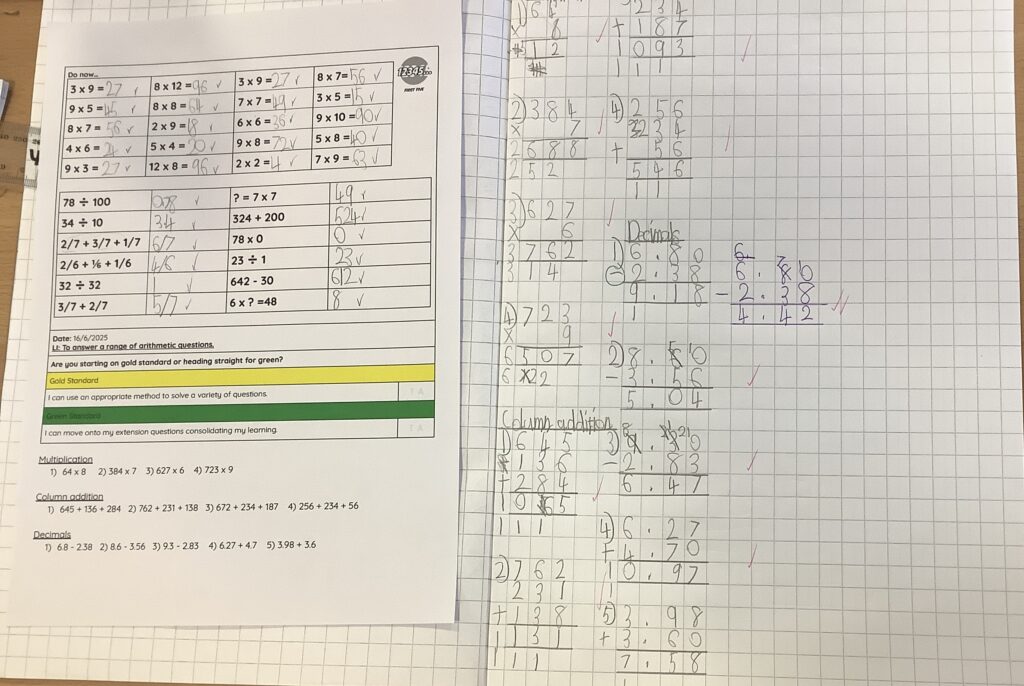 Do now...
3 x 9 = 27 8 x 12 = 96 3 x 9 = 27 8 x 7= 56
9 x 5 = 45 8 x 8 = 64 7 x 7 = 49 3 x 5 = 15
8 x 7 = 56 2 x 9 = 18 6 x 6 = 36 9 x 10 = 90
4 x 6 = 24 5 x 4 = 20 9 x 8 = 72 5 x 8 = 40
9 x 3 = 27 12 x 8 = 96 2 x 2 = 4 7 x 9 = 63
12345...
FIRST FIVE
78 ÷ 100 ? = 7 x 7 49
34 ÷ 10 3.4 324 + 200 524
2/7 + 3/7 + 1/7 6/7 78 x 0 0
2/6 + ⅙ + 1/6 4/6 23 ÷ 1 23
32 ÷ 32 1 642 - 30 612
3/7 + 2/7 5/7 6 x ? =48 8
Date: 16/6/2025
LI: To answer a range of arithmetic questions.
Are you starting on gold standard or heading straight for green?
Gold Standard
I can use an appropriate method to solve a variety of questions. T A
Green Standard
I can move onto my extension questions consolidating my learning. T A
Multiplication
1) 64 x 8 2) 384 x 7 3) 627 x 6 4) 723 x 9
Column addition
1) 645 + 136 + 284 2) 762 + 231 + 138 3) 672 + 234 + 187 4) 256 + 234 + 56
Decimals
1) 6.8 - 2.38 2) 8.6 - 3.56 3) 9.3 - 2.83 4) 6.27 + 4.7 5) 3.98 + 3.6
1) 64
x 8
12
2) 384
x 7
2688
252
3) 627
x 6
3762
314
4) 723
x 9
6507
6 22
Column addition
1) 645
136
+ 284
1065
111
2) 762
231
+ 138
1131
111
234
+ 187
1093
111
4) 256
234
+ 56
546
11
Decimals
1) 6.80
2.38
9.18
1
6.80
- 2.38
4.42
2) 8.60
- 3.56
5.04
3) 9.30
- 2.83
6.47
4) 6.27
+ 4.70
10.97
1
5) 3.98
+ 3.60
7.58